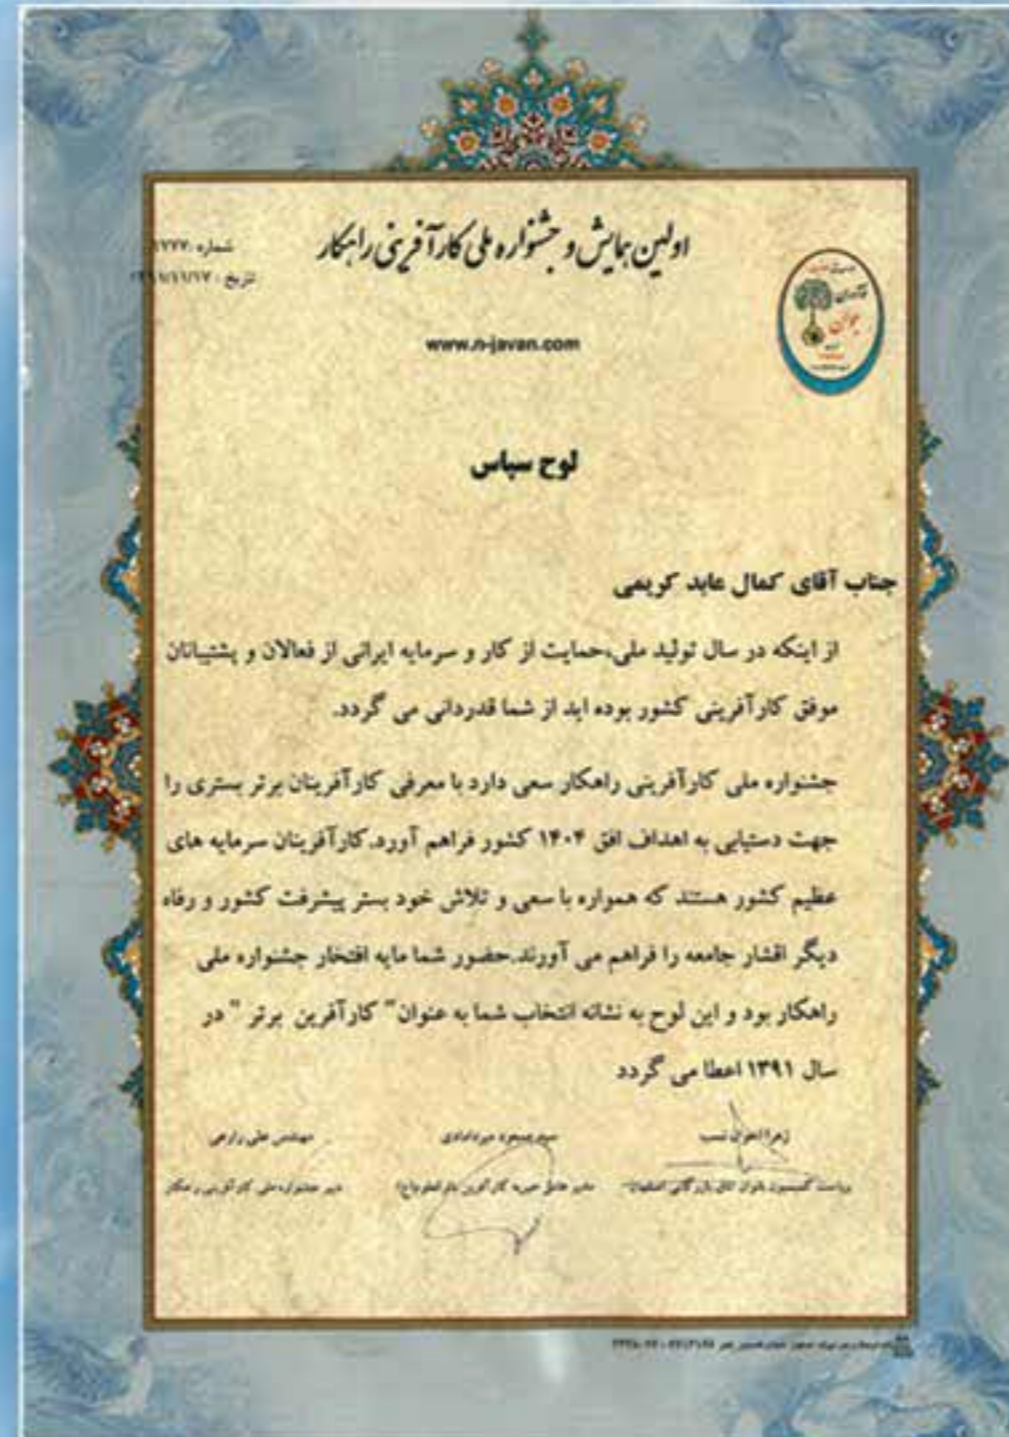 اولین همایش و جشنواره ملی کارآفرینی راهکار
شماره :۱۷۷۷
تاریخ : ۱۳۹۱/۱۱/۱۷
جوان
www.n-javan.com
لوح سپاس
جناب آقای کمال عابد کریمی
از اینکه در سال تولید ملی،حمایت از کار و سرمایه ایرانی از فعالان و پشتیبانان
موفق کارآفرینی کشور بوده اید از شما قدردانی می گردد.
جشنواره ملی کارآفرینی راهکار سعی دارد با معرفی کارآفرینان برتر بستری را
جهت دستیابی به اهداف افق ۱۴۰۴ کشور فراهم آورد.کارآفرینان سرمایه های
عظیم کشور هستند که همواره با سعی و تلاش خود بستر پیشرفت کشور و رفاه
دیگر اقشار جامعه را فراهم می آورند.حضور شما مایه افتخار جشنواره ملی
راهکار بود و این لوح به نشانه انتخاب شما به عنوان" کارآفرین برتر " در
سال ۱۳۹۱ اعطا می گردد
زهرا اخوان نسب
سید مسعود میردامادی
مهندس علی زارعی
ریاست کمیسیون بانوان اتاق بازرگانی اصفهان
مدیر عامل خیریه کارآفرین
دبیر جشنواره ملی کارآفرینی راهکار